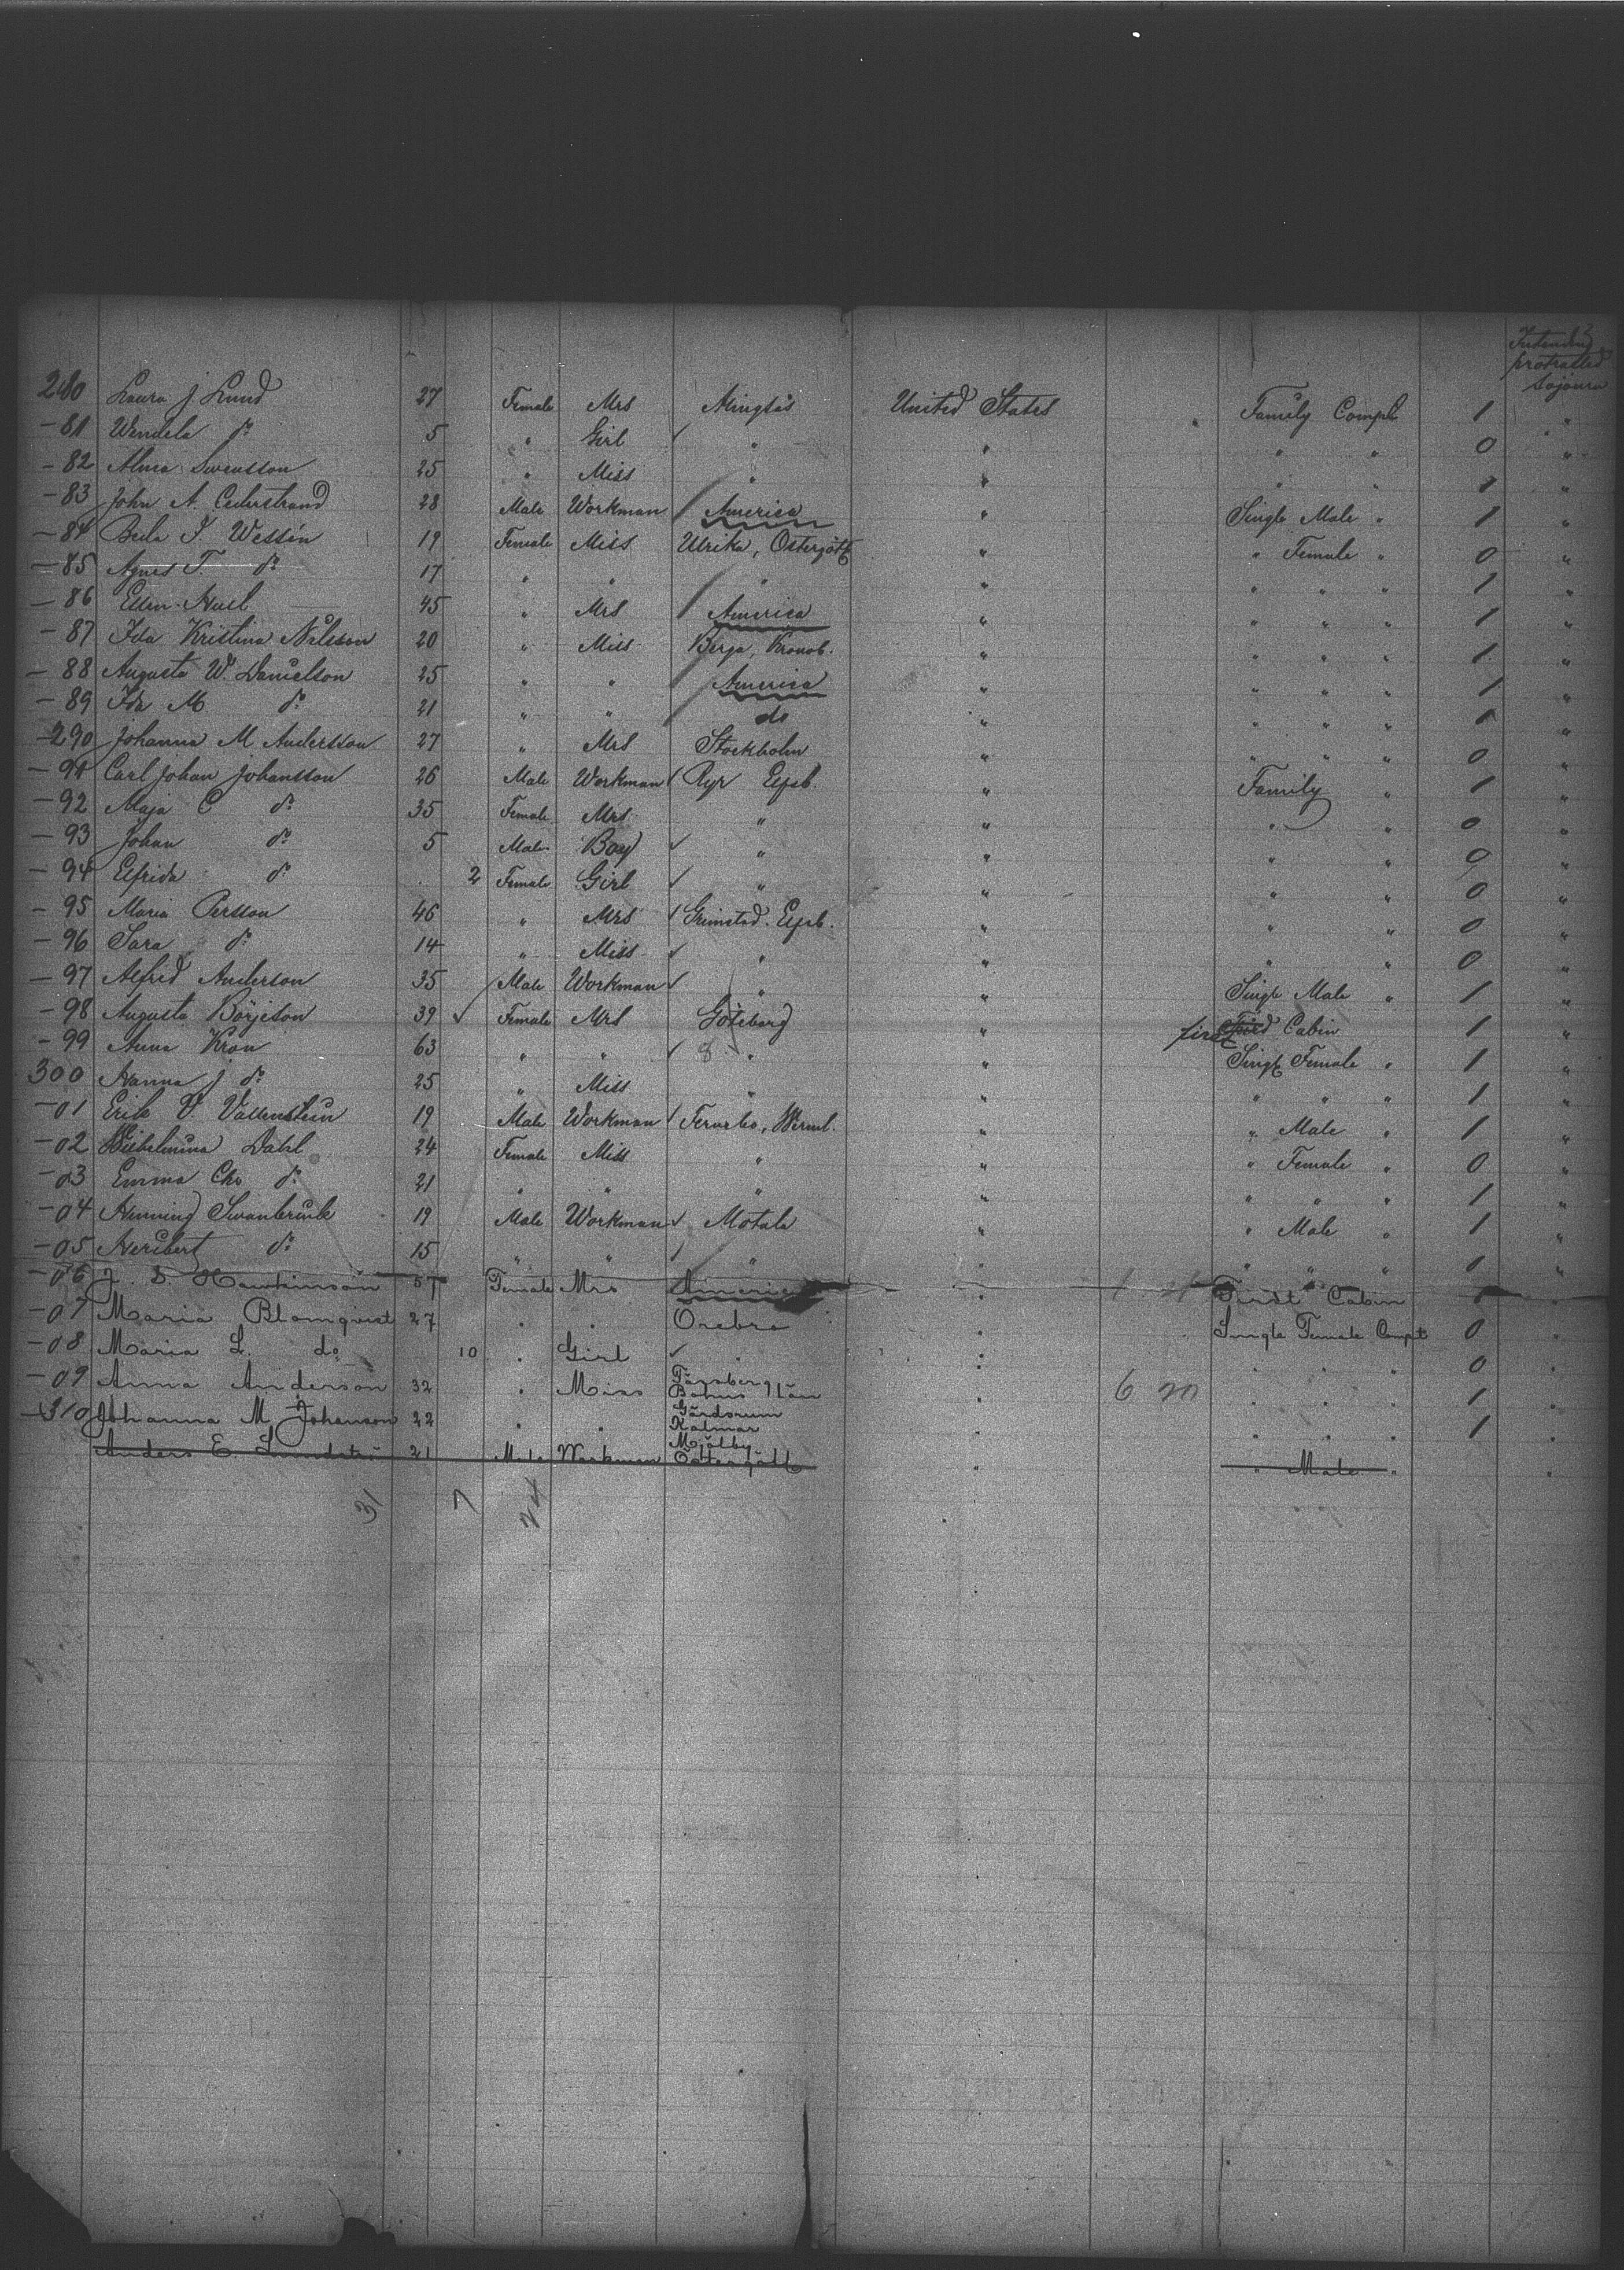 Intending
protracted
Sojourn
280 Laura J. Lund 27 Female Mrs Alingsås United States " Family Compt 1 "
-81 Wendela do 5 " Girl " " " " 0 "
-82 Alma Swensson 25 " Miss " " " " 1 "
-83 John A. Cederstrand 28 Male Workman America " Single Male " 1 "
-84 Beda F. Wessén 19 Female Miss Ulrika, Östergötl " " Female " 0 "
-85 Agnes T. do 17 " " " " " " " 1 "
-86 Ellen 45 " Mrs America " " " " 1 "
-87 Ida Kristina Nilsson 20 " Miss Berga, Kronob. " " " " 1 "
-88 Augusta W. Danielson 25 " " America " " " " 1 "
-89 Ida M do 21 " " do " " " " "
-290 Johanna M Andersson 27 " Mrs Stockholm " " " " 0 "
-91 Carl Johan Johansson 26 Male Workman Ryr Elfsb. " Family " 1 "
-92 Maja C do 35 Female Mrs " " " " 0 "
-93 Johan do 5 Male Boy " " " " 0 "
-94 Elfrida do 2 Female Girl " " " " 0 "
-95 Maria Persson 46 " Mrs Grimstad. Elfsb. " " " 0 "
-96 Sara do 14 " Miss " " " " 0 "
-97 Alfred Anderson 35 Male Workman " " Single Male " 1 "
-98 Augusta Börjeson 39 Female Mrs Göteborg " first Cabin 1 "
-99 Anna Kron 63 " " " " Single Female " 1 "
300 Hanna J do 25 " Miss " " " " " 1 "
-01 Erik V. Vallenstein 19 Male Workman Fernebo, Werml. " " Male " 1 "
-02 Wilhelmina Dahl 24 Female Miss " " " Female " 0 "
-03 Emma Chr do 21 " " " " " " " 1 "
-04 Henning Swanbeck 19 Male Workman Motala " " Male " 1 "
-05 Heribert do 15 " " " " " " " 0 "
-06 J. S. Hawkinson 57 Female Mrs America " 1 First Cabin 1 "
-07 Maria Blomqvist 27 " " Örebro " Single Female Compt 0 "
-08 Maria L. do 10 " Girl " " " " " 0 "
-09 Anna Anderson 32 " Miss Bohus Län " 6 20 " " " 1 "
-310 Johanna M Johanson 22 " " Gärdserum Kalmar " " " " 1 "
Anders E. Lundström 21 Male Workman Mjölby Östergötl " " Male " "
31 7 24